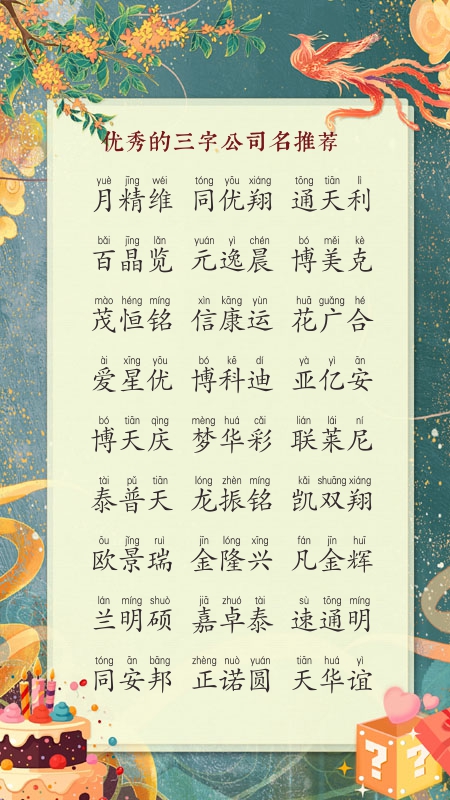 优秀的三字公司名推荐
yuè jīng wéi tóng yōu xiáng tōng tiān lì
月精维 同优翔 通天利
bǎi jīng lǎn yuán yì chén bó měi kè
百晶览 元逸晨 博美克
mào héng míng xìn kāng yùn huā guǎng hé
茂恒铭 信康运 花广合
ài xīng yōu bó kē dí yà yì ān
爱星优 博科迪 亚亿安
bó tiān qìng mèng huá cǎi lián lái ní
博天庆 梦华彩 联莱尼
tài pǔ tiān lóng zhèn míng kǎi shuāng xiáng
泰普天 龙振铭 凯双翔
ōu jǐng ruì jīn lóng xīng fán jīn huī
欧景瑞 金隆兴 凡金辉
lán míng shuò jiā zhuó tài sù tōng míng
兰明硕 嘉卓泰 速通明
tóng ān bāng zhèng nuò yuán tiān huá yì
同安邦 正诺圆 天华谊
? ?